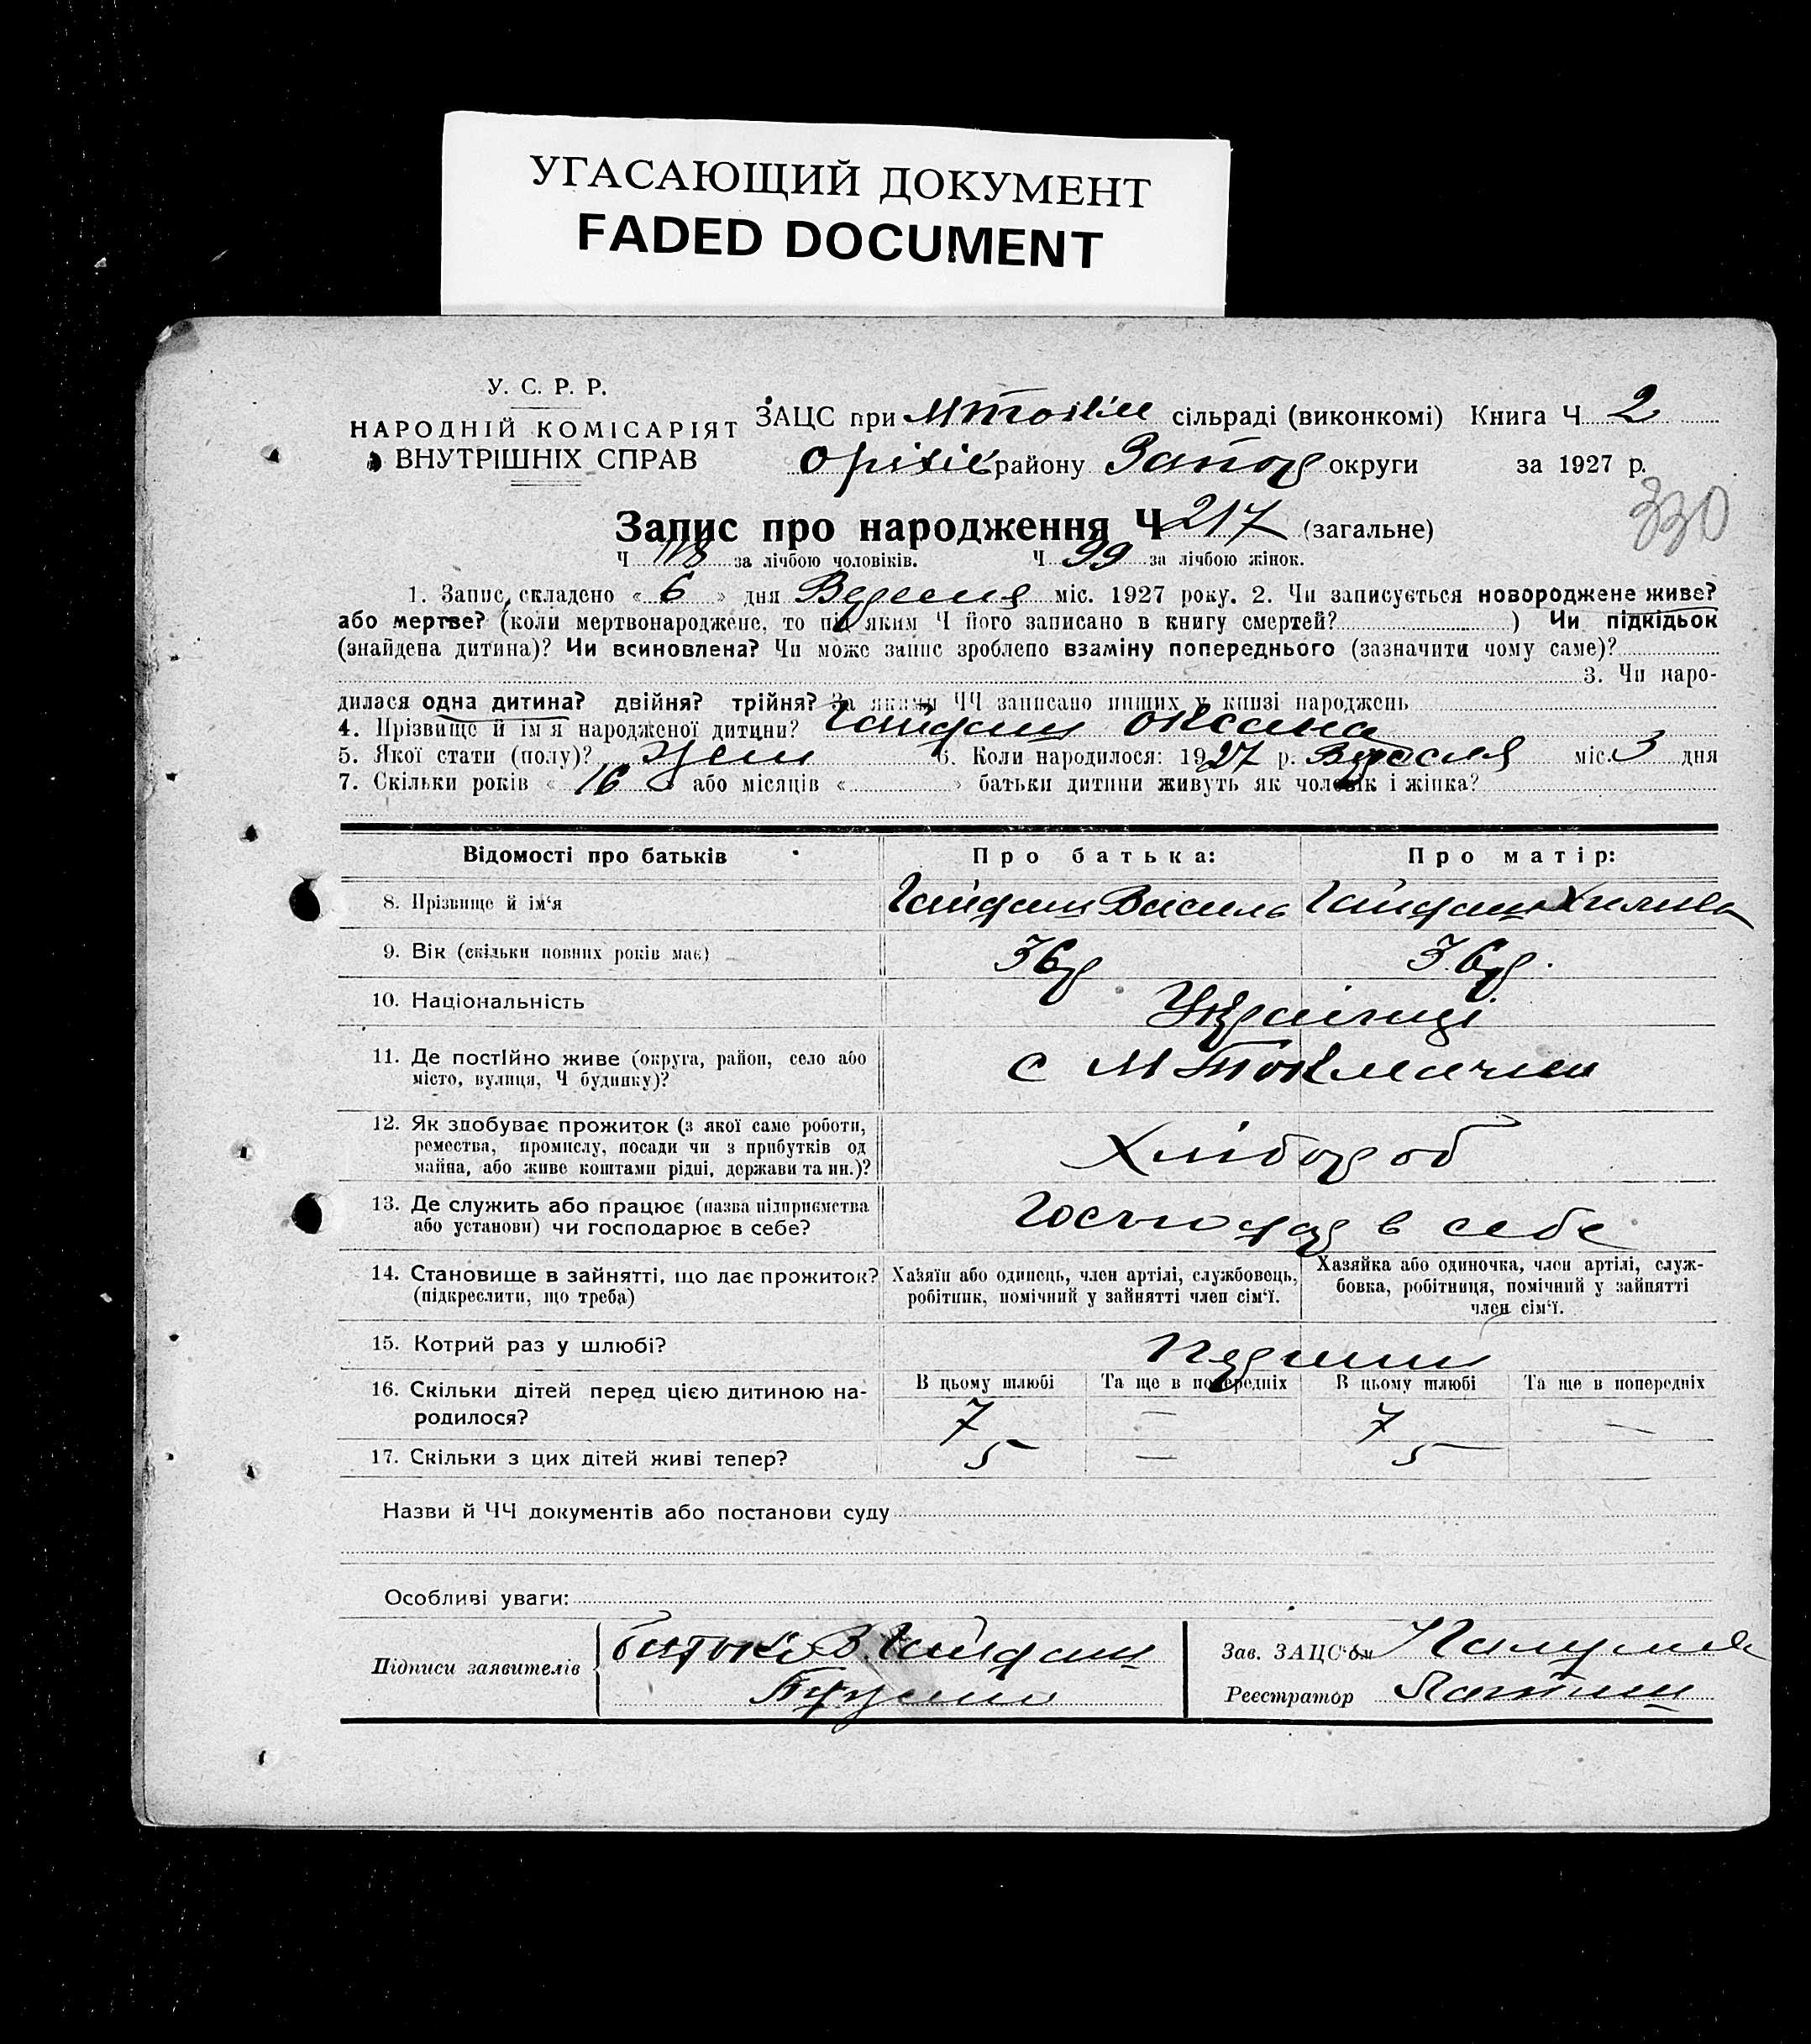 УГАСАЮЩИЙ ДОКУМЕНТ
FADED DOCUMENT
У. С. Р. Р.
НАРОДНІЙ КОМІСАРІЯТ
ВНУТРІШНІХ СПРАВ
ЗАЦС при МТокм сільраді (виконкомі) Книга Ч 2
Оріхів району Запор округи за 1927 р.
330
Запис про народження Ч 217 (загальне)
Ч 118 за лічбою чоловіків. Ч 99 за лічбою жінок.
1. Запис складено « 6 » дня Вересня міс. 1927 року. 2. Чи записується новороджене живе?
або мертве? (коли мертвонароджене, то під яким Ч його записано в книгу смертей? ) Чи підкідьок
(знайдена дитина)? Чи всиновлена? Чи може запис зроблено взаміну попереднього (зазначити чому саме)?
3. Чи наро-
дилася одна дитина? двійня? трійня? За якими ЧЧ записано инших у книзі народжень
4. Прізвище й ім'я народженої дитини? Гайдаш Оксана
5. Якої стати (полу)? жен 6. Коли народилося: 1927 р. Вересня міс. 3 дня
7. Скільки років « 16 » або місяців « » батьки дитини живуть як чоловік і жінка?
Відомості про батьків Про батька: Про матір:
8. Прізвище й ім'я Гайдаш Василь Гайдаш
9. Вік (скільки повних років має) 36р 36р.
10. Національність Українці
11. Де постійно живе (округа, район, село або
місто, вулиця, Ч будинку)? с М Токмачка
12. Як здобуває прожиток (з якої саме роботи,
ремества, промислу, посади чи з прибутків од
майна, або живе коштами рідні, держави та ин.)? Хлібороб
13. Де служить або працює (назва підприємства
або установи) чи господарює в себе? Господар в себе
14. Становище в зайнятті, що дає прожиток?
(підкреслити, що треба)
Хазяїн або одинець, член артілі, службовець,
робітник, помічний у зайнятті член сім'ї.
Хазяйка або одиночка, член артілі, служ-
бовка, робітниця, помічний у зайнятті
член сім'ї.
15. Котрий раз у шлюбі? Перший
16. Скільки дітей перед цією дитиною на-
родилося?
В цьому шлюбі Та ще в попередніх В цьому шлюбі Та ще в попередніх
7 — 7 —
17. Скільки з цих дітей живі тепер? 5 — 5 —
Назви й ЧЧ документів або постанови суду
Особливі уваги:
Підписи заявителів батько В. Гайдаш
Зав. ЗАЦС'ом
Реєстратор